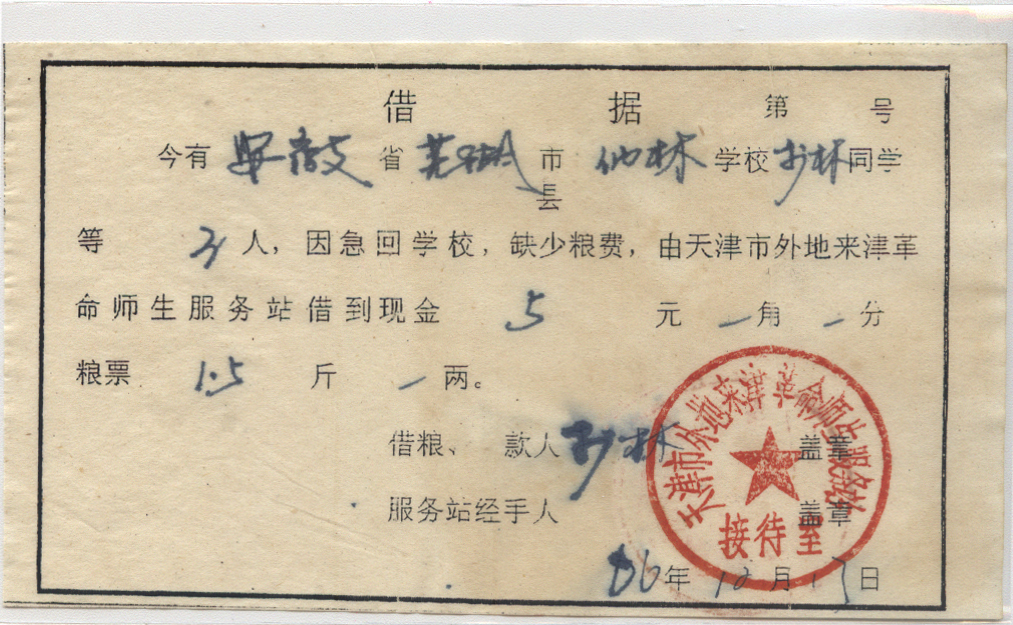 借 据 第 号
今有 安徽 省 芜湖 市县 仙林 学校 林 同学
等 3 人，因急回学校，缺少粮费，由天津市外地来津革
命师生服务站借到现金 5 元 一 角 一 分
粮票 1.5 斤 一 两。
借粮、 款人 林 盖章
服务站经手人 盖章
66年 12月 13日
天津市外地来津革命师生服务站
接待室